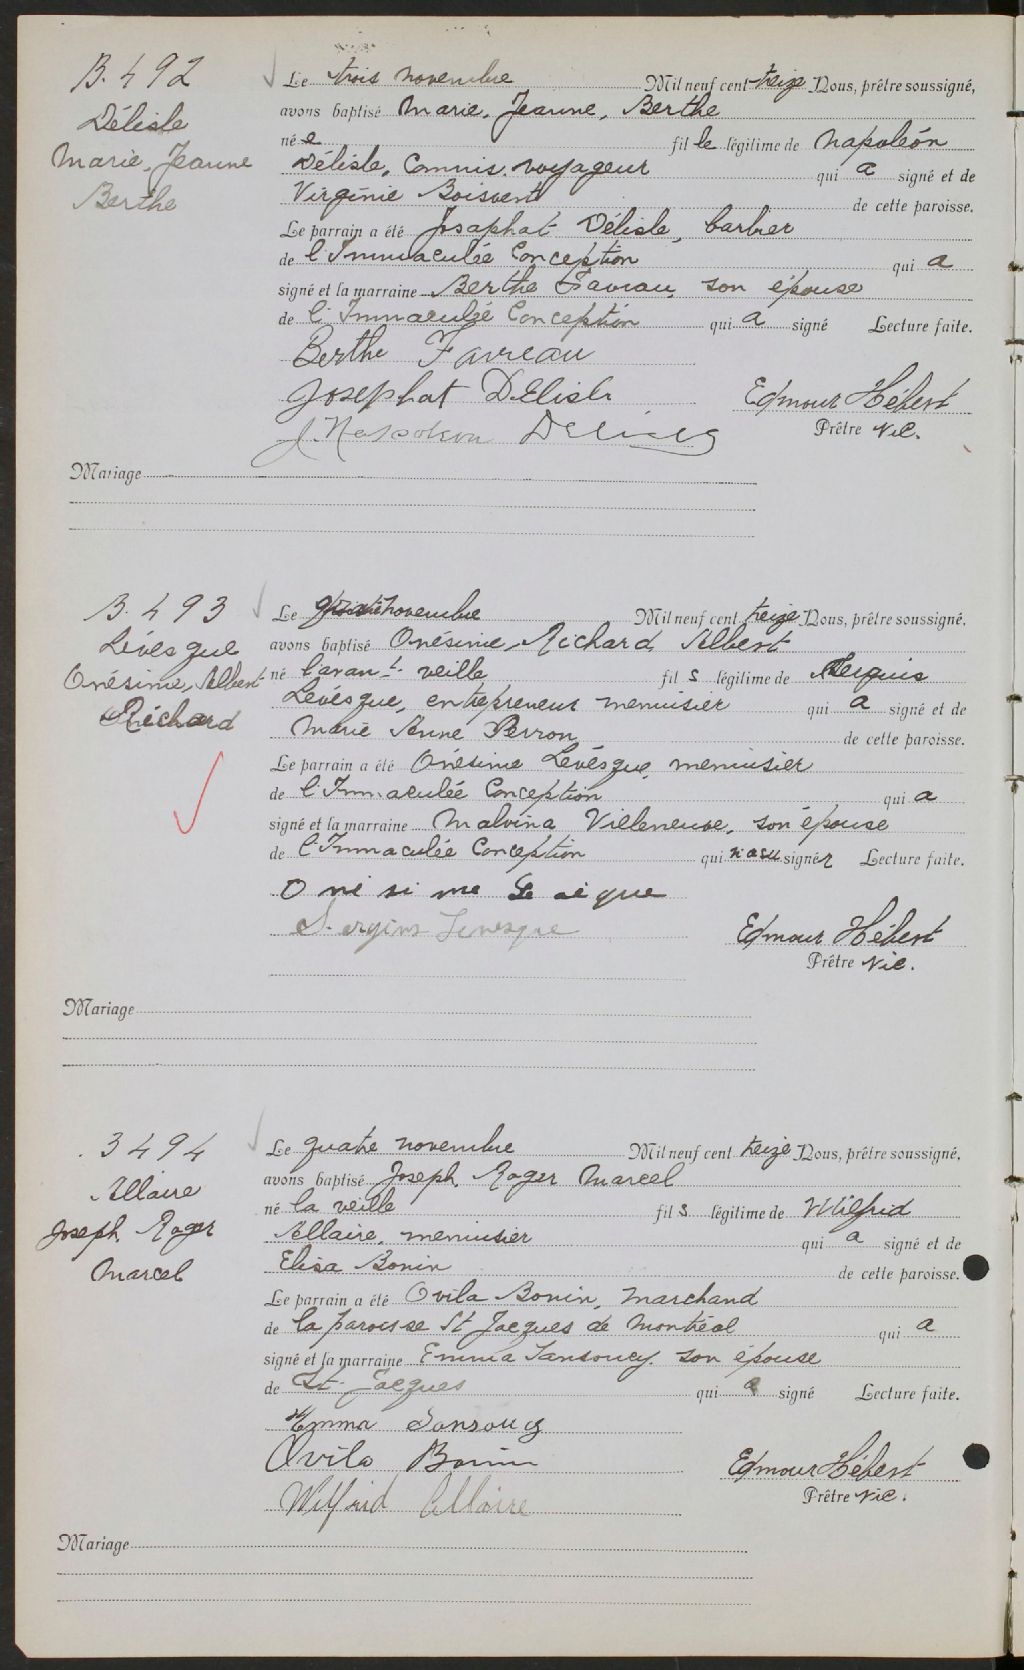 B. 492
Délisle
Marie, Jeanne
Berthe
Le trois novembre Mil neuf cent treize Nous, prêtre soussigné,
avons baptisé Marie, Jeanne, Berthe
née fille légitime de Napoléon
Délisle, Commis. voyageur qui a signé et de
Virginie Boisvert de cette paroisse.
Le parrain a été Josaphat Délisle, barbier
de l'Immaculée Conception qui a
signé et la marraine Berthe Favreau, son épouse
de l'Immaculée Conception qui a signé Lecture faite.
Berthe Favreau
Josephat DElisle
J. Napoleon Delisle
Edmour Hébert
Prêtre Vic.
Mariage
B. 493
Lévesque
Onésime, Albert
Richard
Le novembre Mil neuf cent treize Nous, prêtre soussigné,
avons baptisé Onésime, Richard Albert
né l'avant-veille fils légitime de
Lévésque, entrepreneur menuisier qui a signé et de
Marie Anne Perron de cette paroisse.
Le parrain a été Onésime Lévésque, menuisier
de l'Immaculée Conception qui a
signé et la marraine Malvina Villeneuve, son épouse
de l'Immaculée Conception qui n'a su signer Lecture faite.
Onésime
Levesque
Edmour Hébert
Prêtre Vic.
Mariage
B 494
Allaire
Joseph Roger
Marcel
Le quatre novembre Mil neuf cent treize Nous, prêtre soussigné,
avons baptisé Joseph Roger Marcel
né la veille fils légitime de Wilfrid
Allaire, menuisier qui a signé et de
Elisa Bonin de cette paroisse.
Le parrain a été Ovila Bonin, marchand
de la paroisse St Jacques de Montréal qui a
signé et la marraine Emma Sansoucy son épouse
de St. Jacques qui a signé Lecture faite.
Emma Sansoucy
Ovila Bonin
Wilfrid Allaire
Edmour Hébert
Prêtre Vic.
Mariage